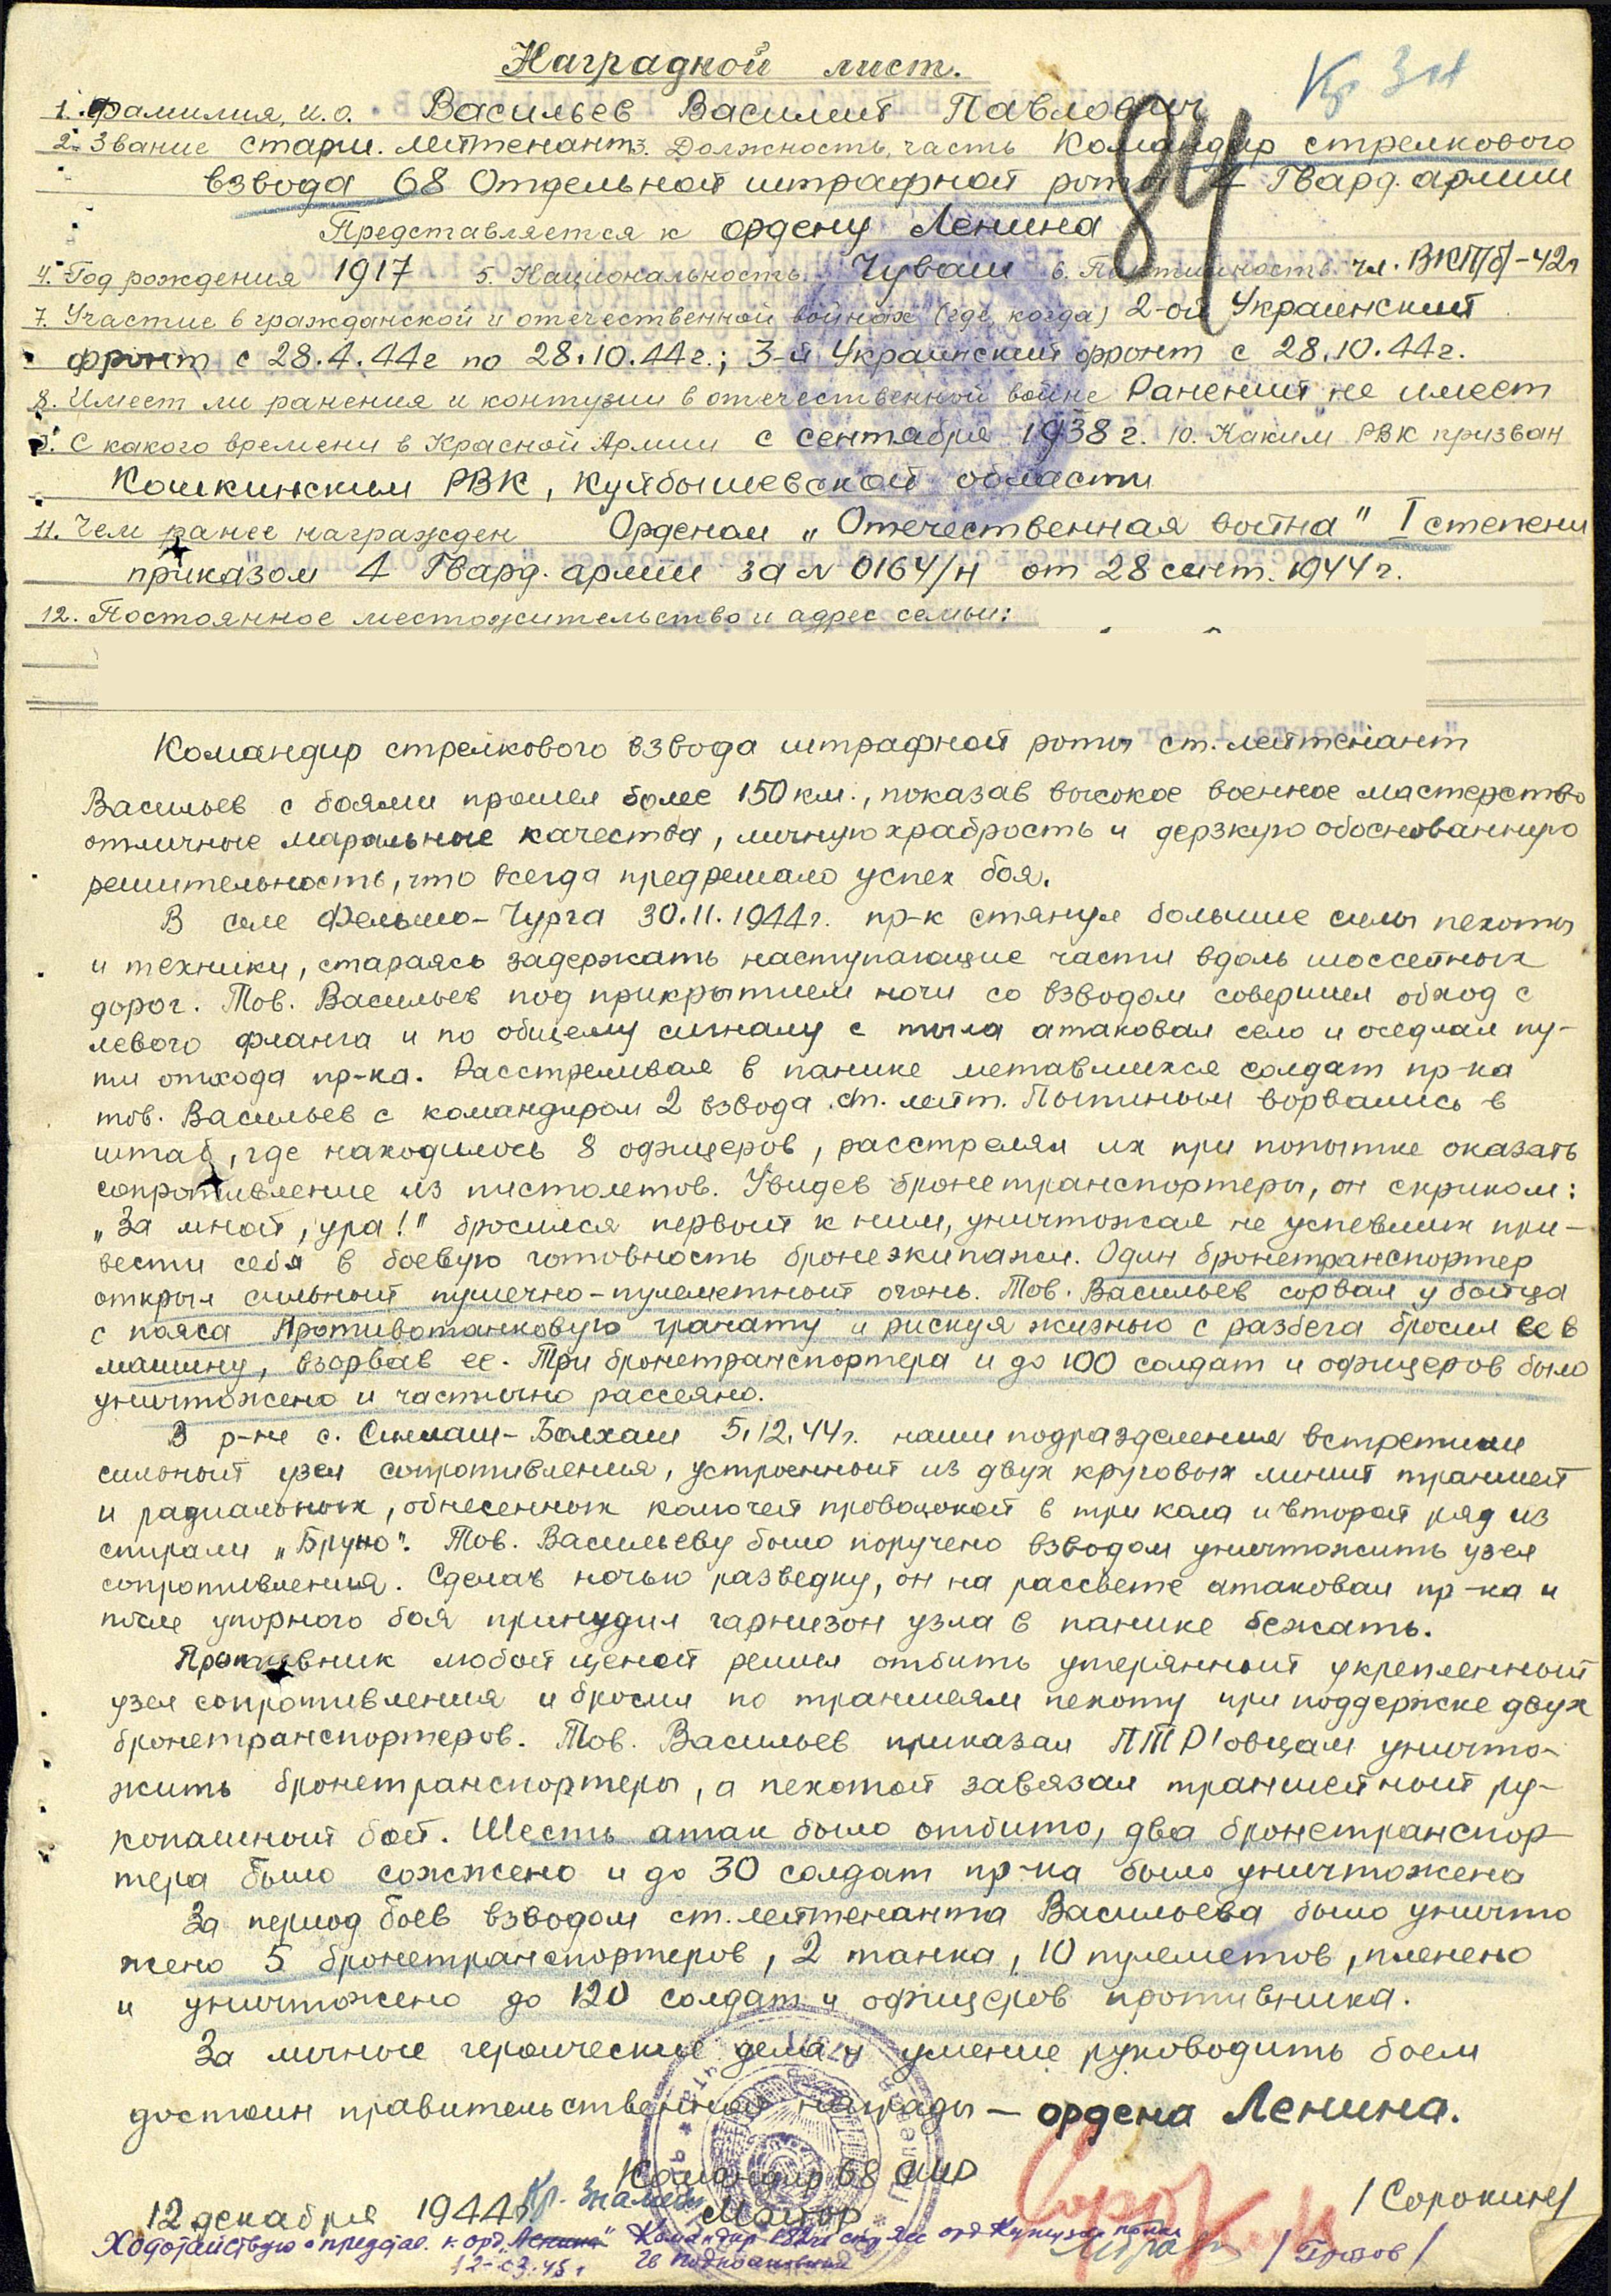 Наградной лист.
Кр Зн
1. Фамилия, и.о. Васильев Василий Павлович
84
2. Звание старш. лейтенант 3. Должность, часть Командир стрелкового
взвода 68 Отдельной штрафной роты 4 Гвард. армии
Представляется к ордену Ленина
4. Год рождения 1917 5. Национальность Чуваш 6. Партийность чл. ВКП/б/-42г
7. Участие в гражданской и отечественной войнах (где, когда) 2-ой Украинский
фронт с 28.4.44г по 28.10.44г.; 3-й Украинский фронт с 28.10.44г.
8. Имеет ли ранения и контузии в отечественной войне Ранений не имеет
9. С какого времени в Красной Армии с сентября 1938 г. 10. Каким РВК призван
Кошкинским РВК, Куйбышевской области
11. Чем ранее награжден Орденом „Отечественная война" I степени
приказом 4 Гвард. армии за N 0164/н от 28 сент. 1944 г.
12. Постоянное местожительство и адрес семьи:
Командир стрелкового взвода штрафной роты ст. лейтенант
Васильев с боями прошел более 150 км., показав высокое военное мастерство
отличные маральные качества, личную храбрость и дерзкую обоснованную
решительность, что всегда предрешало успех боя.
В селе Фельшо-Чурга 30.11.1944г. пр-к стянул большие силы пехоты
и техники, стараясь задержать наступающие части вдоль шоссейных
дорог. Тов. Васильев под прикрытием ночи со взводом совершил обход с
левого фланга и по общему сигналу с тыла атаковал село и оседлал пу-
ти отхода пр-ка. Расстреливая в панике метавшихся солдат пр-ка
тов. Васильев с командиром 2 взвода ст. лейт. ворвались в
штаб, где находилось 8 офицеров, расстрелял их при попытке оказать
сопротивление из пистолетов. Увидев бронетранспортеры, он с криком:
„За мной, ура!" бросился первый к ним, уничтожая не успевших при-
вести себя в боевую готовность бронеэкипажи. Один бронетранспортер
открыл сильный пушечно-пулеметный огонь. Тов. Васильев сорвал у бойца
с пояса противотанковую гранату и рискуя жизнью с разбега бросил ее в
машину, взорвав ее. Три бронетранспортера и до 100 солдат и офицеров было
уничтожено и частично рассеяно.
В р-не с. Шимаш-Балхаш 5.12.44г. наши подразделения встретили
сильный узел сопротивления, устроенный из двух круговых линий траншей
и радиальных, обнесенных колючей проволокой в три кола и второй ряд из
спирали „Бруно". Тов. Васильеву было поручено взводом уничтожить узел
сопротивления. Сделав ночью разведку, он на рассвете атаковал пр-ка и
после упорного боя принудил гарнизон узла в панике бежать.
Противник любой ценой решил отбить утерянный укрепленный
узел сопротивления и бросил по траншеям пехоту при поддержке двух
бронетранспортеров. Тов. Васильев приказал ПТР'овцам уничто-
жить бронетранспортеры, а пехотой завязал траншейный ру-
копашный бой. Шесть атак было отбито, два бронетранспор-
тера было сожжено и до 30 солдат пр-ка было уничтожено
За период боев взводом ст. лейтенанта Васильева было уничто
жено 5 бронетранспортеров, 2 танка, 10 пулеметов, пленено
и уничтожено до 120 солдат и офицеров противника.
За личные героические дела и умение руководить боем
достоин правительственной награды — ордена Ленина.
Командир 68 ОШР
Майор /Сорокин/
12 декабря 1944г. Кр. Знамени
Ходотайствую о представ. к орд. „Ленина" Командир сд орд Кутузова
12-03.45г Гв подполковник